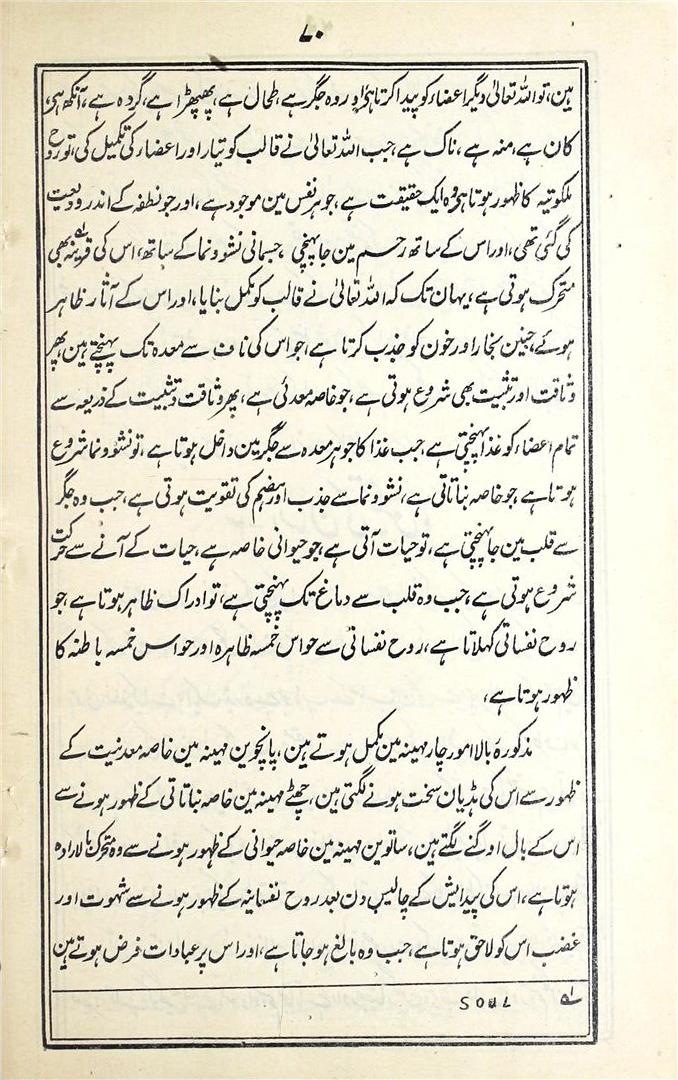 ۷۰
ہین، تو اللہ تعالیٰ دیگر اعضاء کو پیدا کرتا ہی، اور وہ جگر ہے، طحال ہے، پھیپھڑا ہے، گردہ ہے، آنکھ ہی،
کان ہے، منہ ہے، ناک ہے، جب اللہ تعالیٰ نے قالب کو تیار اور اعضاء کی تکمیل کی، تو روح
ملکوتیہ کا ظہور ہوتا ہی، وہ ایک حقیقت ہے، جو ہر نفس مین موجود ہے، اور جو نطفہ کے اندر ودیعت
کی گئی تھی، اور اس کے ساتھ رحم مین جا پہنچی، جسمانی نشو و نما کے ساتھ، اس کی قرینہ لہ بھی
متحرک ہوتی ہے، یہان تک کہ اللہ تعالیٰ نے قالب کو مکمل بنایا، اور اس کے آثار ظاہر
ہوئے، جنین بخار اور خون کو جذب کرتا ہے، جو اس کی ناف سے معدہ تک پہنچتے ہین، پھر
وثاقت اور تثبیت بھی شروع ہوتی ہے، جو خاصہ معدنی ہے، پھر وثاقت و تثبیت کے ذریعہ سے
تمام اعضاء کو غذا پہنچتی ہے، جب غذا کا جوہر معدہ سے جگر مین داخل ہوتا ہے، تو نشو و نما شروع
ہوتا ہے، جو خاصہ نباتاتی ہے، نشو و نما سے جذب اور ہضم کی تقویت ہوتی ہے، جب وہ جگر
سے قلب مین جا پہنچتی ہے، تو حیات آتی ہے، جو حیوانی خاصہ ہے، حیات کے آنے سے حرکت
شروع ہوتی ہے، جب وہ قلب سے دماغ تک پہنچتی ہے، تو ادراک ظاہر ہوتا ہے، جو
روح نفساتی کہلاتا ہے، روح نفسانی سے حواس خمسہ ظاہرہ اور حواس خمسہ باطنہ کا
ظہور ہوتا ہے،
مذکورۂ بالا امور چار مہینہ مین مکمل ہوتے ہین، پانچوین مہینہ مین خاصہ معدنیت کے
ظہور سے اس کی ہڈیان سخت ہونے لگتی ہین، چھٹے مہینہ مین خاصہ نباتاتی کے ظہور ہونے سے
اس کے بال اوگنے لگتے ہین، ساتوین مہینہ مین خاصہ حیوانی کے ظہور ہونے سے وہ متحرک بالارادہ
ہوتا ہے، اس کی پیدایش کے چالیس دن بعد روح نفسانیہ کے ظہور ہونے سے شہوت اور
غضب اس کو لاحق ہوتا ہے، جب وہ بالغ ہو جاتا ہے، اور اس پر عبادات فرض ہوتے ہین
لہ SOUL